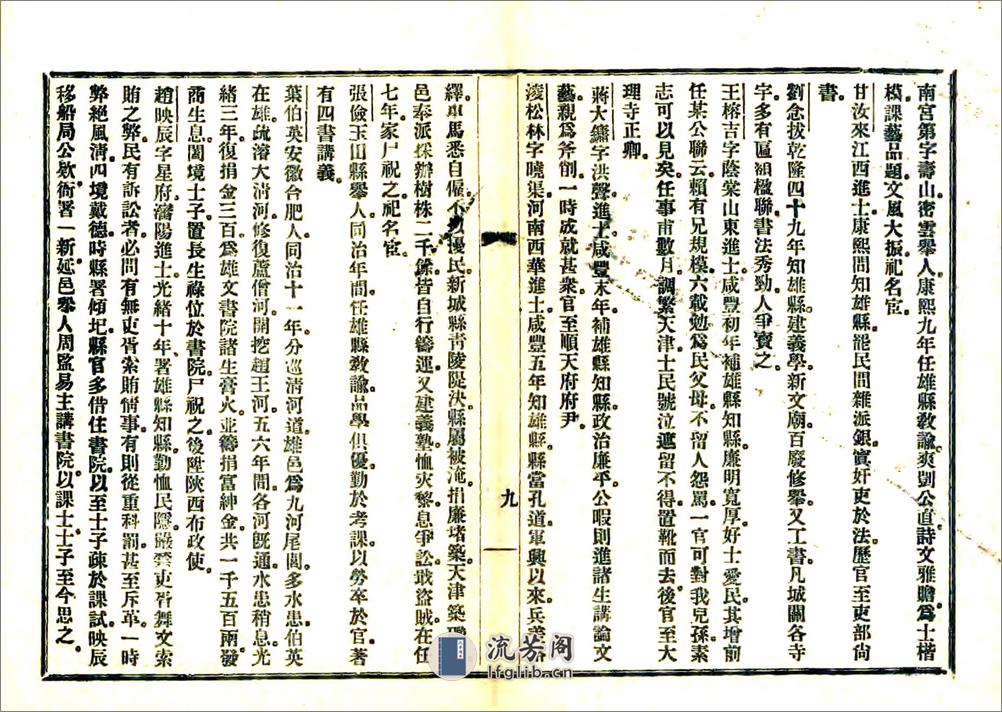 南宮第字壽山密雲舉人康熙九年任雄縣敎諭爽剴公直詩文雅贍爲士楷
模課藝品題文風大振祀名宦
甘汝來江西進士康熙間知雄縣能民間雜派銀寘奸吏於法歷官至吏部尙
書
劉念拔乾隆四十九年知雄縣建義學新文廟百廢修舉又工書凡城關各寺
宇多有匾額楹聯書法秀勁人爭寶之
王榕吉字蔭棠山東進士咸豐初年補雄縣知縣廉明寬厚好士愛民其增前
任某公聯云賴有兄規模六載勉爲民父母不留人怨罵一官可對我兒孫素
志可以見矣任事甫數月調繁天津士民號泣遮留不得置靴而去後官至大
理寺正卿
蔣大鏞字洪聲進士咸豐末年補雄縣知縣政治廉平公暇則進諸生講論文
藝親爲斧削一時成就甚衆官至順天府府尹
淩松林字曉渠河南西華進士咸豐五年知雄縣縣當孔道軍興以來兵差絡
九
繹車馬悉自僱不以擾民新城縣靑陵隄決縣屬被淹捐廉堵築天津築
邑奉派採辦樹株二千餘皆自行籌運又建義塾恤灾黎息爭訟戢盜賊在任
七年家尸祝之祀名宦
張儉玉田縣舉人同治年間任雄縣敎諭品學俱優勤於考課以勞卒於官著
有四書講義
葉伯英安徽合肥人同治十一年分巡淸河道雄邑爲九河尾閭多水患伯英
在雄疏濬大淸河修復蘆僧河開挖趙王河五六年間各河旣通水患稍息光
緒三年復捐金三百爲雄文書院諸生膏火並籌捐富紳金共一千五百兩發
商生息闔境士子置長生祿位於書院尸祝之後陞陝西布政使
趙映辰字星府瀋陽進士光緒十年署雄縣知縣勤恤民隱嚴禁吏胥舞文索
賄之弊民有訴訟者必問有無吏胥索賄情事有則從重科罰甚至斥革一時
弊絕風淸四境戴德時縣署傾圮縣官多借住書院以至士子疎於課試映辰
移船局公欵衙署一新延邑舉人周監易主講書院以課士士子至今思之
流芳阁
lfglib.cn